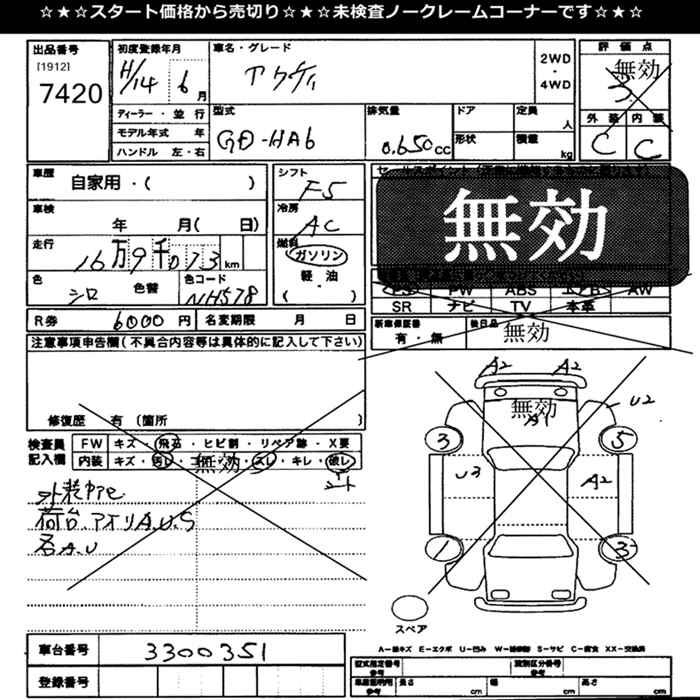 ☆★☆★スタート価格から売切り☆★☆★未検査ノークレームコーナーです☆★☆
出品番号 初度登録年月 車名・グレード 2WD ・ 4WD 評価点
[1912] H/14 6月 アクティ 無効
7420 3
ディーラー・並行 型式 排気量 ドア 定員 人 外装 内装
モデル年式 年 GD-HA6 0.650cc 形状 積量 kg C C
ハンドル 左・右
車歴 自家用・( ) シフト F5
車検 年 月( 日) 冷房 AC 無効
走行 16万9千073km 燃料 ガソリン
軽・油
( )
色 シロ 色替 色コード NH578
PS PW ABS エアB AW
SR ナビ TV 本革
R券 6000円 名変期限 月 日 新車保証書 有・無 後日品 無効
注意事項申告欄(不具合内容等は具体的に記入して下さい)
A2 A2
無効
A1
U2
修復歴 有 (箇所 )
検査員 FW キズ・飛石・ヒビ割・リペア跡・X要
記入欄 内装 キズ・汚レ・コゲ・スレ・キレ・破レ
無効
シート
3 5
U3 A2
外装
荷台.アオリA.U.S
A.U
1 3
スペア
車台番号 3300351
A−線キズ E−エクボ U−凹み W−補修跡 S−サビ C−腐食 XX−交換済
登録番号
型式指定番号 参考 類別区分番号 参考
長さ cm 幅 cm 高さ cm